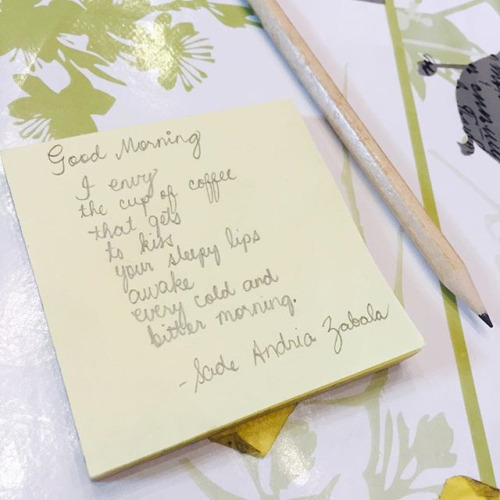 Good Morning
I envy
the cup of coffee
that gets
to kiss
your sleepy lips
awake
every cold and
bitter morning.
-Sade Andria Zabala